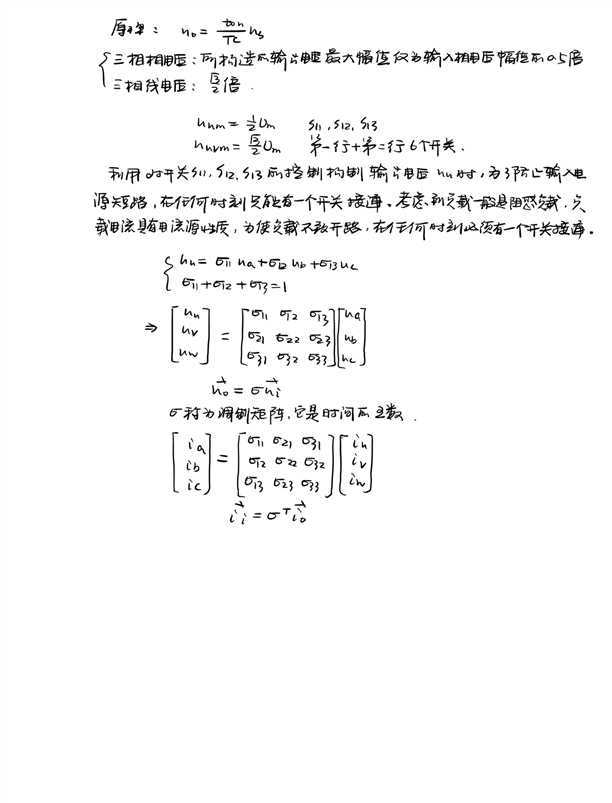 原理: u₀ = ton/Tc us
三相相电压: 所构造的输出电压最大幅值仅为输入相电压幅值的0.5倍
三相线电压: √3/2倍.
uum = 1/2 Um S11, S12, S13
uuvm = √3/2 Um 第一行+第二行6个开关.
利用对开关S11, S12, S13的控制构制输出电压uu时, 为了防止输入电
源短路, 在任何时刻只能有一个开关接通. 考虑到负载一般是阻感负载, 负
载电流具有电流源性质, 为使负载不致开路, 在任何时刻必须有一个开关接通.
uu = σ11 ua + σ12 ub + σ13 uc
σ11 + σ12 + σ13 = 1
⇒ [uu uv uw] = [σ11 σ12 σ13; σ21 σ22 σ23; σ31 σ32 σ33] [ua ub uc]
u⃗o = σu⃗i
σ称为调制矩阵, 它是时间的函数.
[ia ib ic] = [σ11 σ21 σ31; σ12 σ22 σ32; σ13 σ23 σ33] [iu iv iw]
i⃗i = σᵀi⃗o